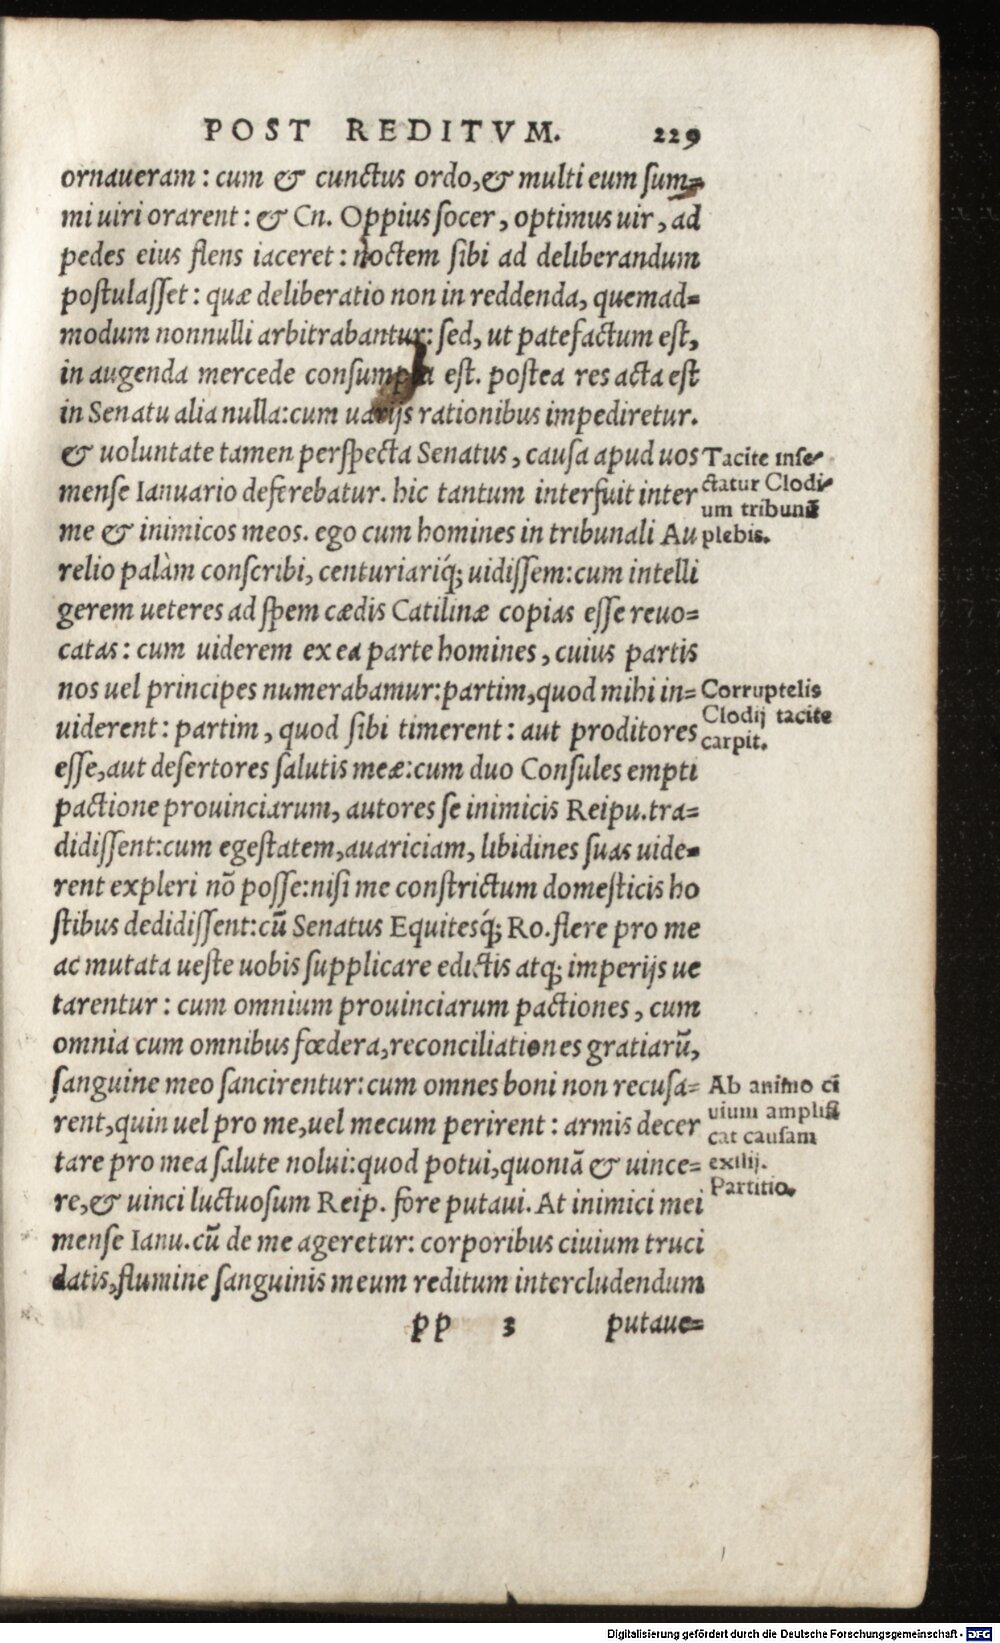 POST REDITVM. 229
ornaueram: cum & cunctus ordo, & multi eum sum=
mi uiri orarent: & Cn. Oppius socer, optimus uir, ad
pedes eius flens iaceret: noctem sibi ad deliberandum
postulasset: quæ deliberatio non in reddenda, quemad=
modum nonnulli arbitrabantur: sed, ut patefactum est,
in augenda mercede consumpta est. postea res acta est
in Senatu alia nulla: cum uarijs rationibus impediretur.
& uoluntate tamen perspecta Senatus, causa apud uos
mense Ianuario deferebatur. hic tantum interfuit inter
me & inimicos meos. ego cum homines in tribunali Au
relio palàm conscribi, centuriariq́; uidissem: cum intelli
gerem ueteres ad spem cædis Catilinæ copias esse reuo=
catas: cum uiderem ex ea parte homines, cuius partis
nos uel principes numerabamur: partim, quod mihi in=
uiderent: partim, quod sibi timerent: aut proditores
esse, aut desertores salutis meæ: cum duo Consules empti
pactione prouinciarum, autores se inimicis Reipu. tra=
didissent: cum egestatem, auariciam, libidines suas uide=
rent expleri nō posse: nisi me constrictum domesticis ho
stibus dedidissent: cū Senatus Equitesq́; Ro. flere pro me
ac mutata ueste uobis supplicare edictis atq; imperijs ue
tarentur: cum omnium prouinciarum pactiones, cum
omnia cum omnibus fœdera, reconciliationes gratiarū,
sanguine meo sancirentur: cum omnes boni non recusa=
rent, quin uel pro me, uel mecum perirent: armis decer
tare pro mea salute nolui: quod potui, quoniā & uince=
re, & uinci luctuosum Reip. fore putaui. At inimici mei
mense Ianu. cū de me ageretur: corporibus ciuium truci
datis, flumine sanguinis meum reditum intercludendum
pp 3 putaue=
Tacite inse-
ctatur Clodi-
um tribunū
plebis.
Corruptelis
Clodij tacite
carpit.
Ab animo ci
uium amplifi
cat causam
exilij.
Partitio.
Digitalisierung gefördert durch die Deutsche Forschungsgemeinschaft - DFG